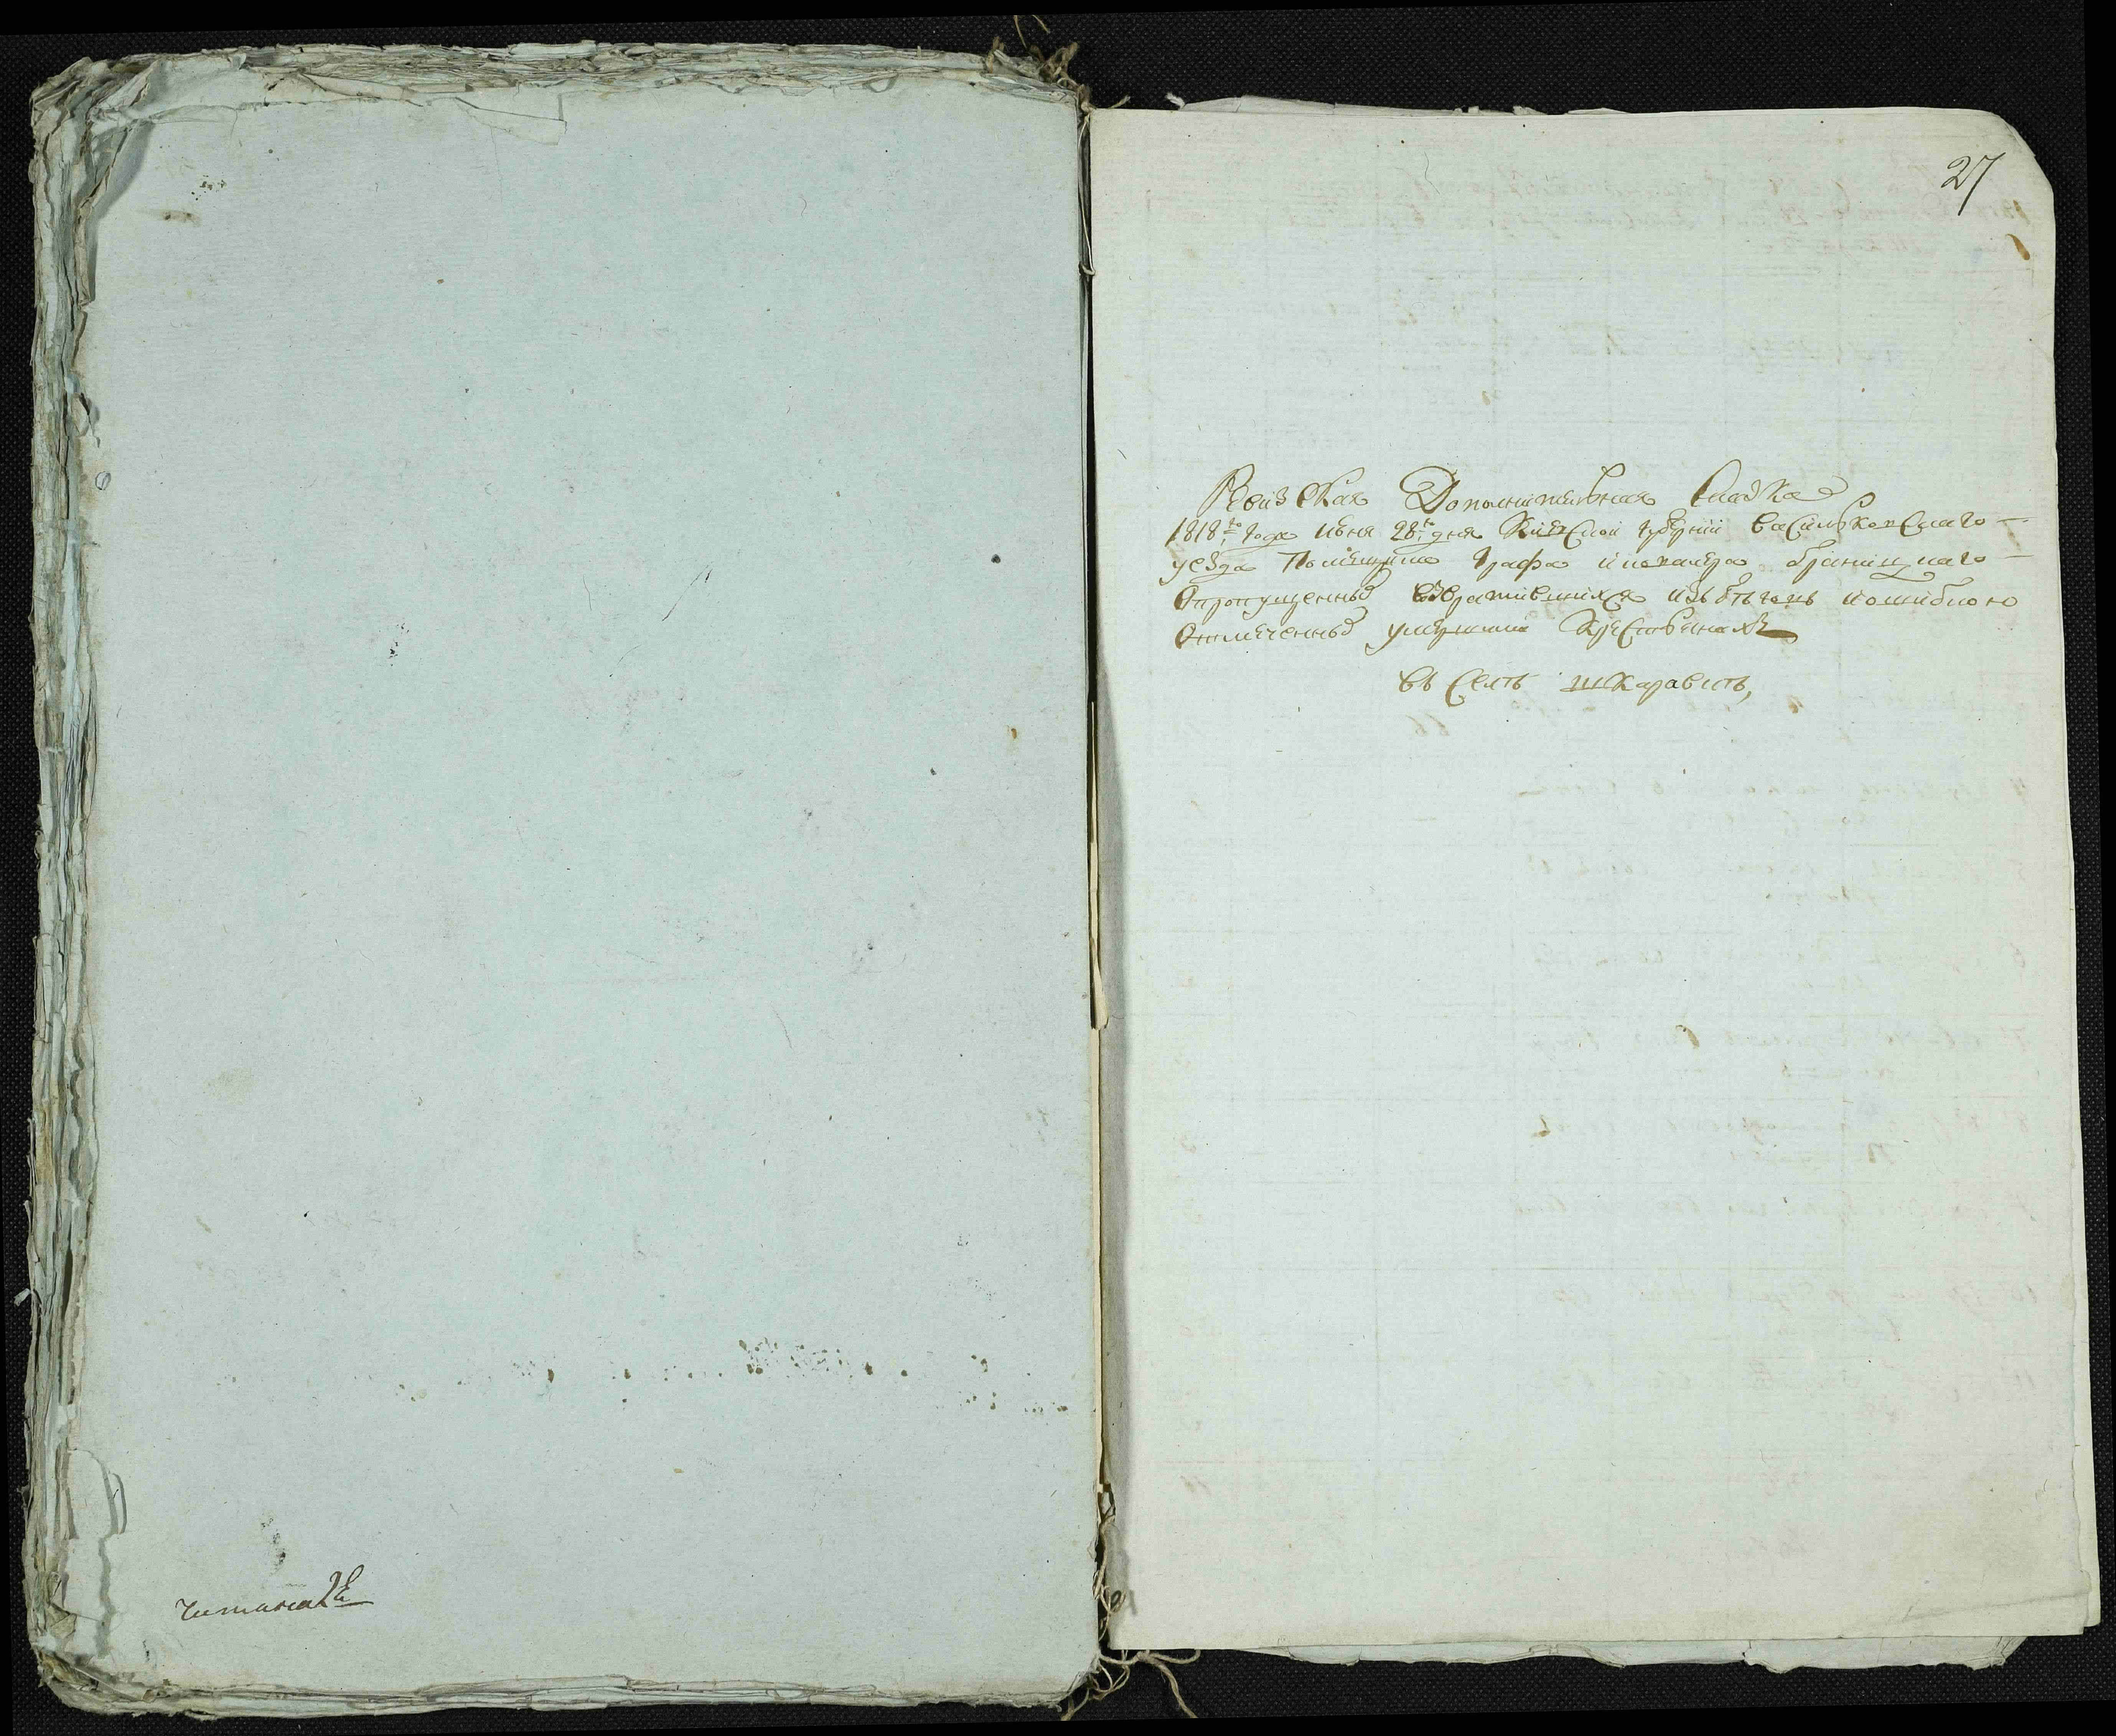 27
Ревизская Дополнительная Сказка
1818го года июня 28го дня Киевской губернии Васильковскаго
уезда Помещика Графа и кавалера браницкаго
О пропущенных возвратившихся изъ бѣговъ и ошибкою
Отмеченных умершими Крестьянахъ
въ Селѣ шкаравкѣ,
читалъ